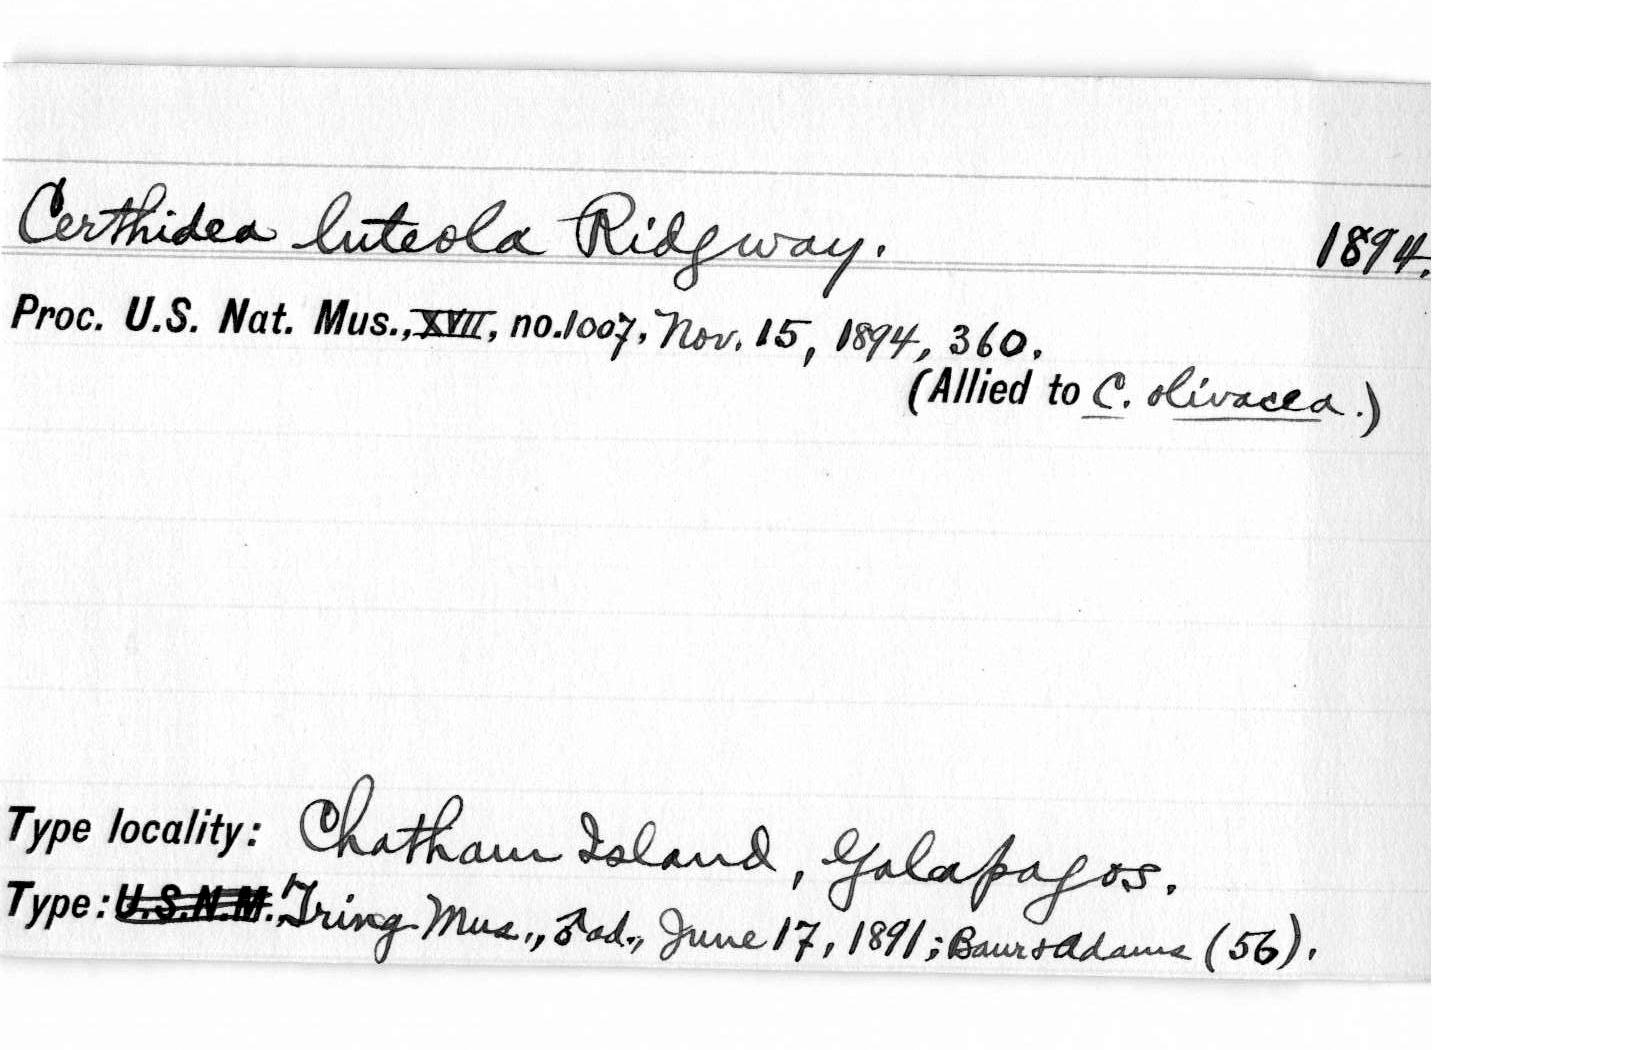 Certhidea luteola Ridgway. 1894.
Proc. U.S. Nat. Mus., XVII, no. 1007, Nov. 15, 1894, 360.
(Allied to C. olivacea.)
Type locality: Chatham Island, Galapagos.
Type: U.S.N.M. Tring Mus., ♂ ad., June 17, 1891; Baur & Adams (56).